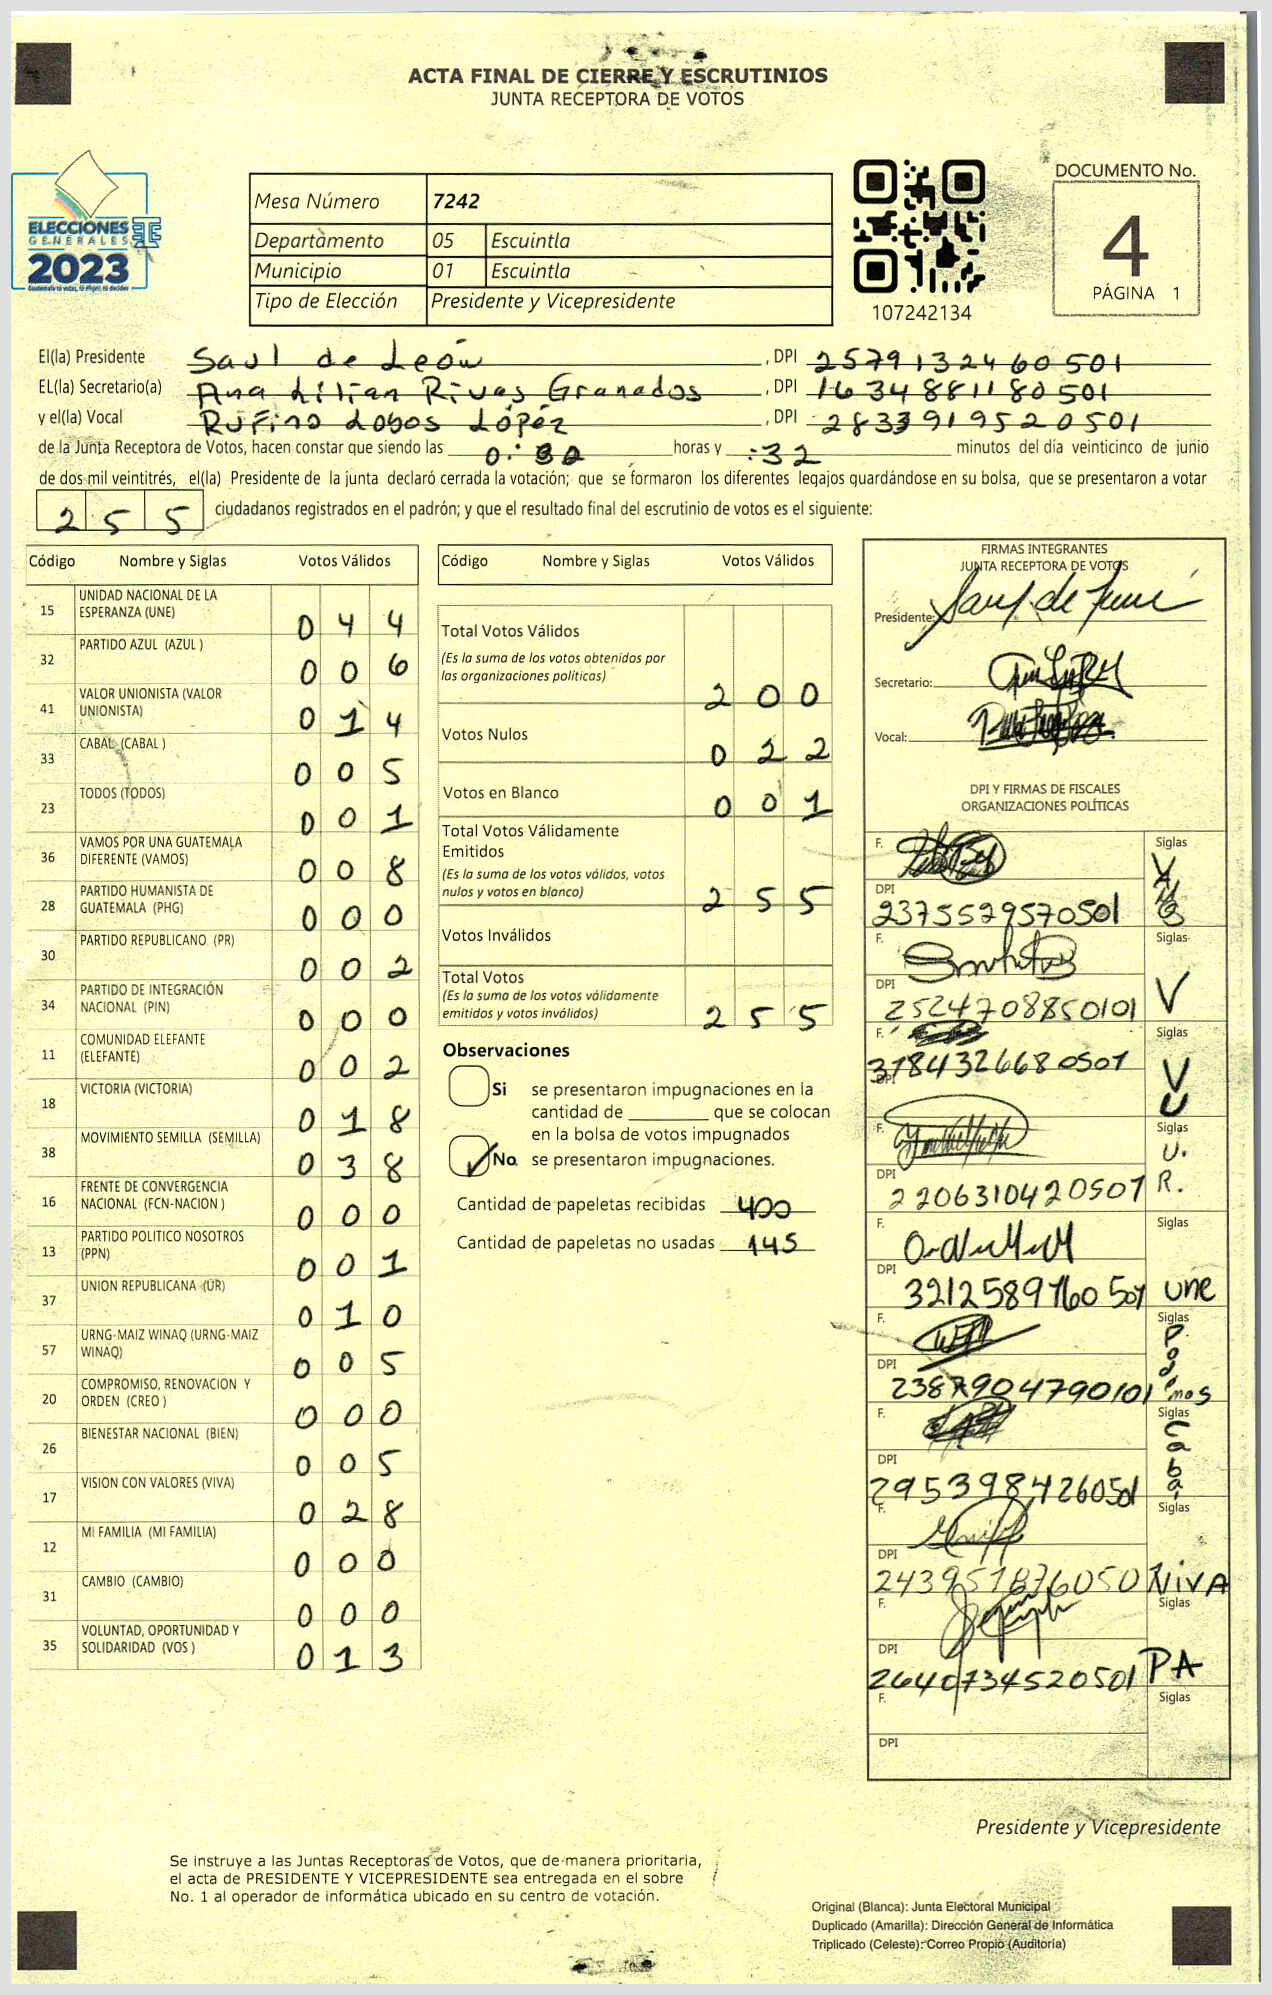 ACTA FINAL DE CIERRE Y ESCRUTINIOS
JUNTA RECEPTORA DE VOTOS
ELECCIONES
GENERALES
2023
Mesa Número 7242
Departamento 05 Escuintla
Municipio 01 Escuintla
Tipo de Elección Presidente y Vicepresidente
107242134
DOCUMENTO No.
4
PÁGINA 1
El(la) Presidente Saul de León, DPI 2579132460501
EL(la) Secretario(a) Ana Lilian Rivas Granados, DPI 1634881180501
y el(la) Vocal Rufino Lobos López, DPI 2833919520501
de la Junta Receptora de Votos, hacen constar que siendo las horas y :32 minutos del día veinticinco de junio
de dos mil veintitrés, el(la) Presidente de la junta declaró cerrada la votación; que se formaron los diferentes legajos guardándose en su bolsa, que se presentaron a votar
255 ciudadanos registrados en el padrón; y que el resultado final del escrutinio de votos es el siguiente:
Código Nombre y Siglas Votos Válidos
15 UNIDAD NACIONAL DE LA ESPERANZA (UNE) 044
32 PARTIDO AZUL (AZUL ) 006
41 VALOR UNIONISTA (VALOR UNIONISTA) 014
33 CABAL (CABAL ) 005
23 TODOS (TODOS) 001
36 VAMOS POR UNA GUATEMALA DIFERENTE (VAMOS) 008
28 PARTIDO HUMANISTA DE GUATEMALA (PHG) 000
30 PARTIDO REPUBLICANO (PR) 002
34 PARTIDO DE INTEGRACIÓN NACIONAL (PIN) 000
11 COMUNIDAD ELEFANTE (ELEFANTE) 002
18 VICTORIA (VICTORIA) 018
38 MOVIMIENTO SEMILLA (SEMILLA) 038
16 FRENTE DE CONVERGENCIA NACIONAL (FCN-NACION ) 000
13 PARTIDO POLITICO NOSOTROS (PPN) 001
37 UNION REPUBLICANA (UR) 010
57 URNG-MAIZ WINAQ (URNG-MAIZ WINAQ) 005
20 COMPROMISO, RENOVACION Y ORDEN (CREO ) 000
26 BIENESTAR NACIONAL (BIEN) 005
17 VISION CON VALORES (VIVA) 028
12 MI FAMILIA (MI FAMILIA) 000
31 CAMBIO (CAMBIO) 000
35 VOLUNTAD, OPORTUNIDAD Y SOLIDARIDAD (VOS ) 013
Código Nombre y Siglas Votos Válidos
Total Votos Válidos
(Es la suma de los votos obtenidos por
las organizaciones políticas) 200
Votos Nulos 022
Votos en Blanco 001
Total Votos Válidamente
Emitidos
(Es la suma de los votos válidos, votos
nulos y votos en blanco) 255
Votos Inválidos
Total Votos
(Es la suma de los votos válidamente
emitidos y votos inválidos) 255
Observaciones
Si se presentaron impugnaciones en la
cantidad de que se colocan
en la bolsa de votos impugnados
No se presentaron impugnaciones.
Cantidad de papeletas recibidas 400
Cantidad de papeletas no usadas 145
FIRMAS INTEGRANTES
JUNTA RECEPTORA DE VOTOS
Presidente:
Secretario:
Vocal:
DPI Y FIRMAS DE FISCALES
ORGANIZACIONES POLÍTICAS
F. Siglas
DPI 2375529570501
F. Siglas V
DPI 2524708850101
F. Siglas V U
DPI 3184326680501
F. Siglas U. R.
DPI 2206310420501
F. Siglas une
DPI
F. Siglas Podemos
DPI 2387904790101
F. Siglas Cabal
DPI 2953984260501
F. Siglas VIVA
DPI
F. Siglas PA
DPI 2640734520501
F. Siglas
DPI
Presidente y Vicepresidente
Se instruye a las Juntas Receptoras de Votos, que de manera prioritaria,
el acta de PRESIDENTE Y VICEPRESIDENTE sea entregada en el sobre
No. 1 al operador de informática ubicado en su centro de votación.
Original (Blanca): Junta Electoral Municipal
Duplicado (Amarilla): Dirección General de Informática
Triplicado (Celeste): Correo Propio (Auditoría)